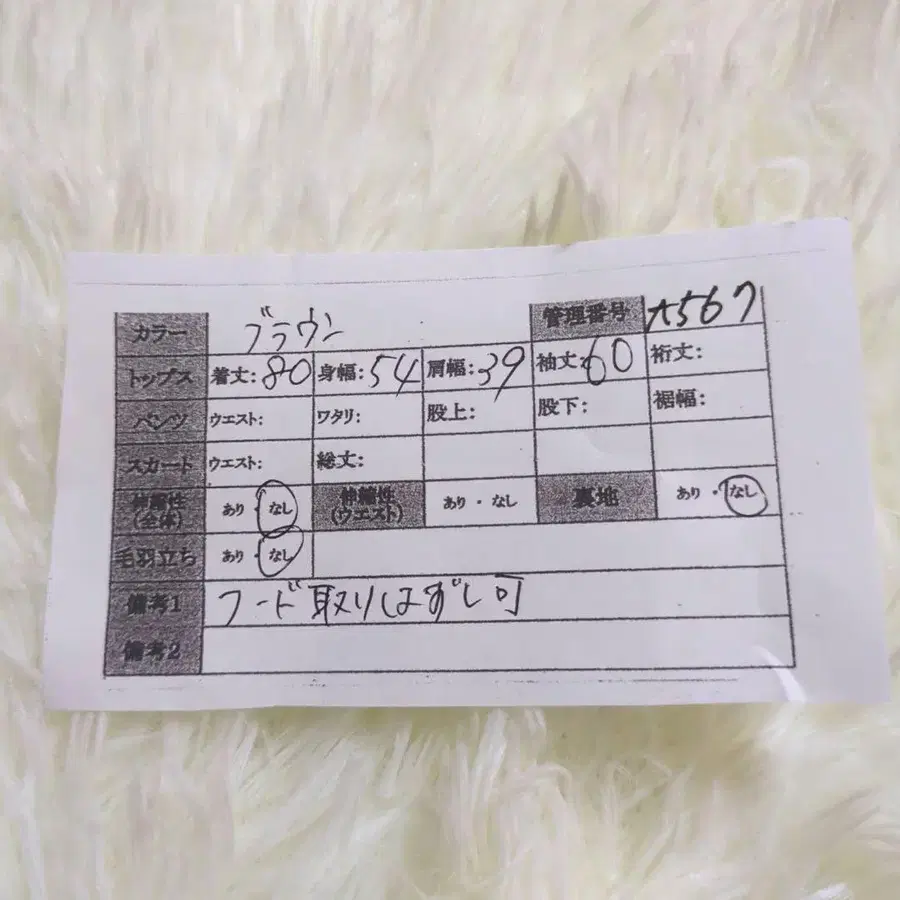 カラー ブラウン 管理番号 A567
トップス 着丈:80 身幅:54 肩幅:39 袖丈:60 裄丈:
パンツ ウエスト: ワタリ: 股上: 股下: 裾幅:
スカート ウエスト: 総丈:
伸縮性(全体) あり・なし 伸縮性(ウエスト) あり・なし 裏地 あり・なし
毛羽立ち あり・なし
備考1 フード取りはずし可
備考2